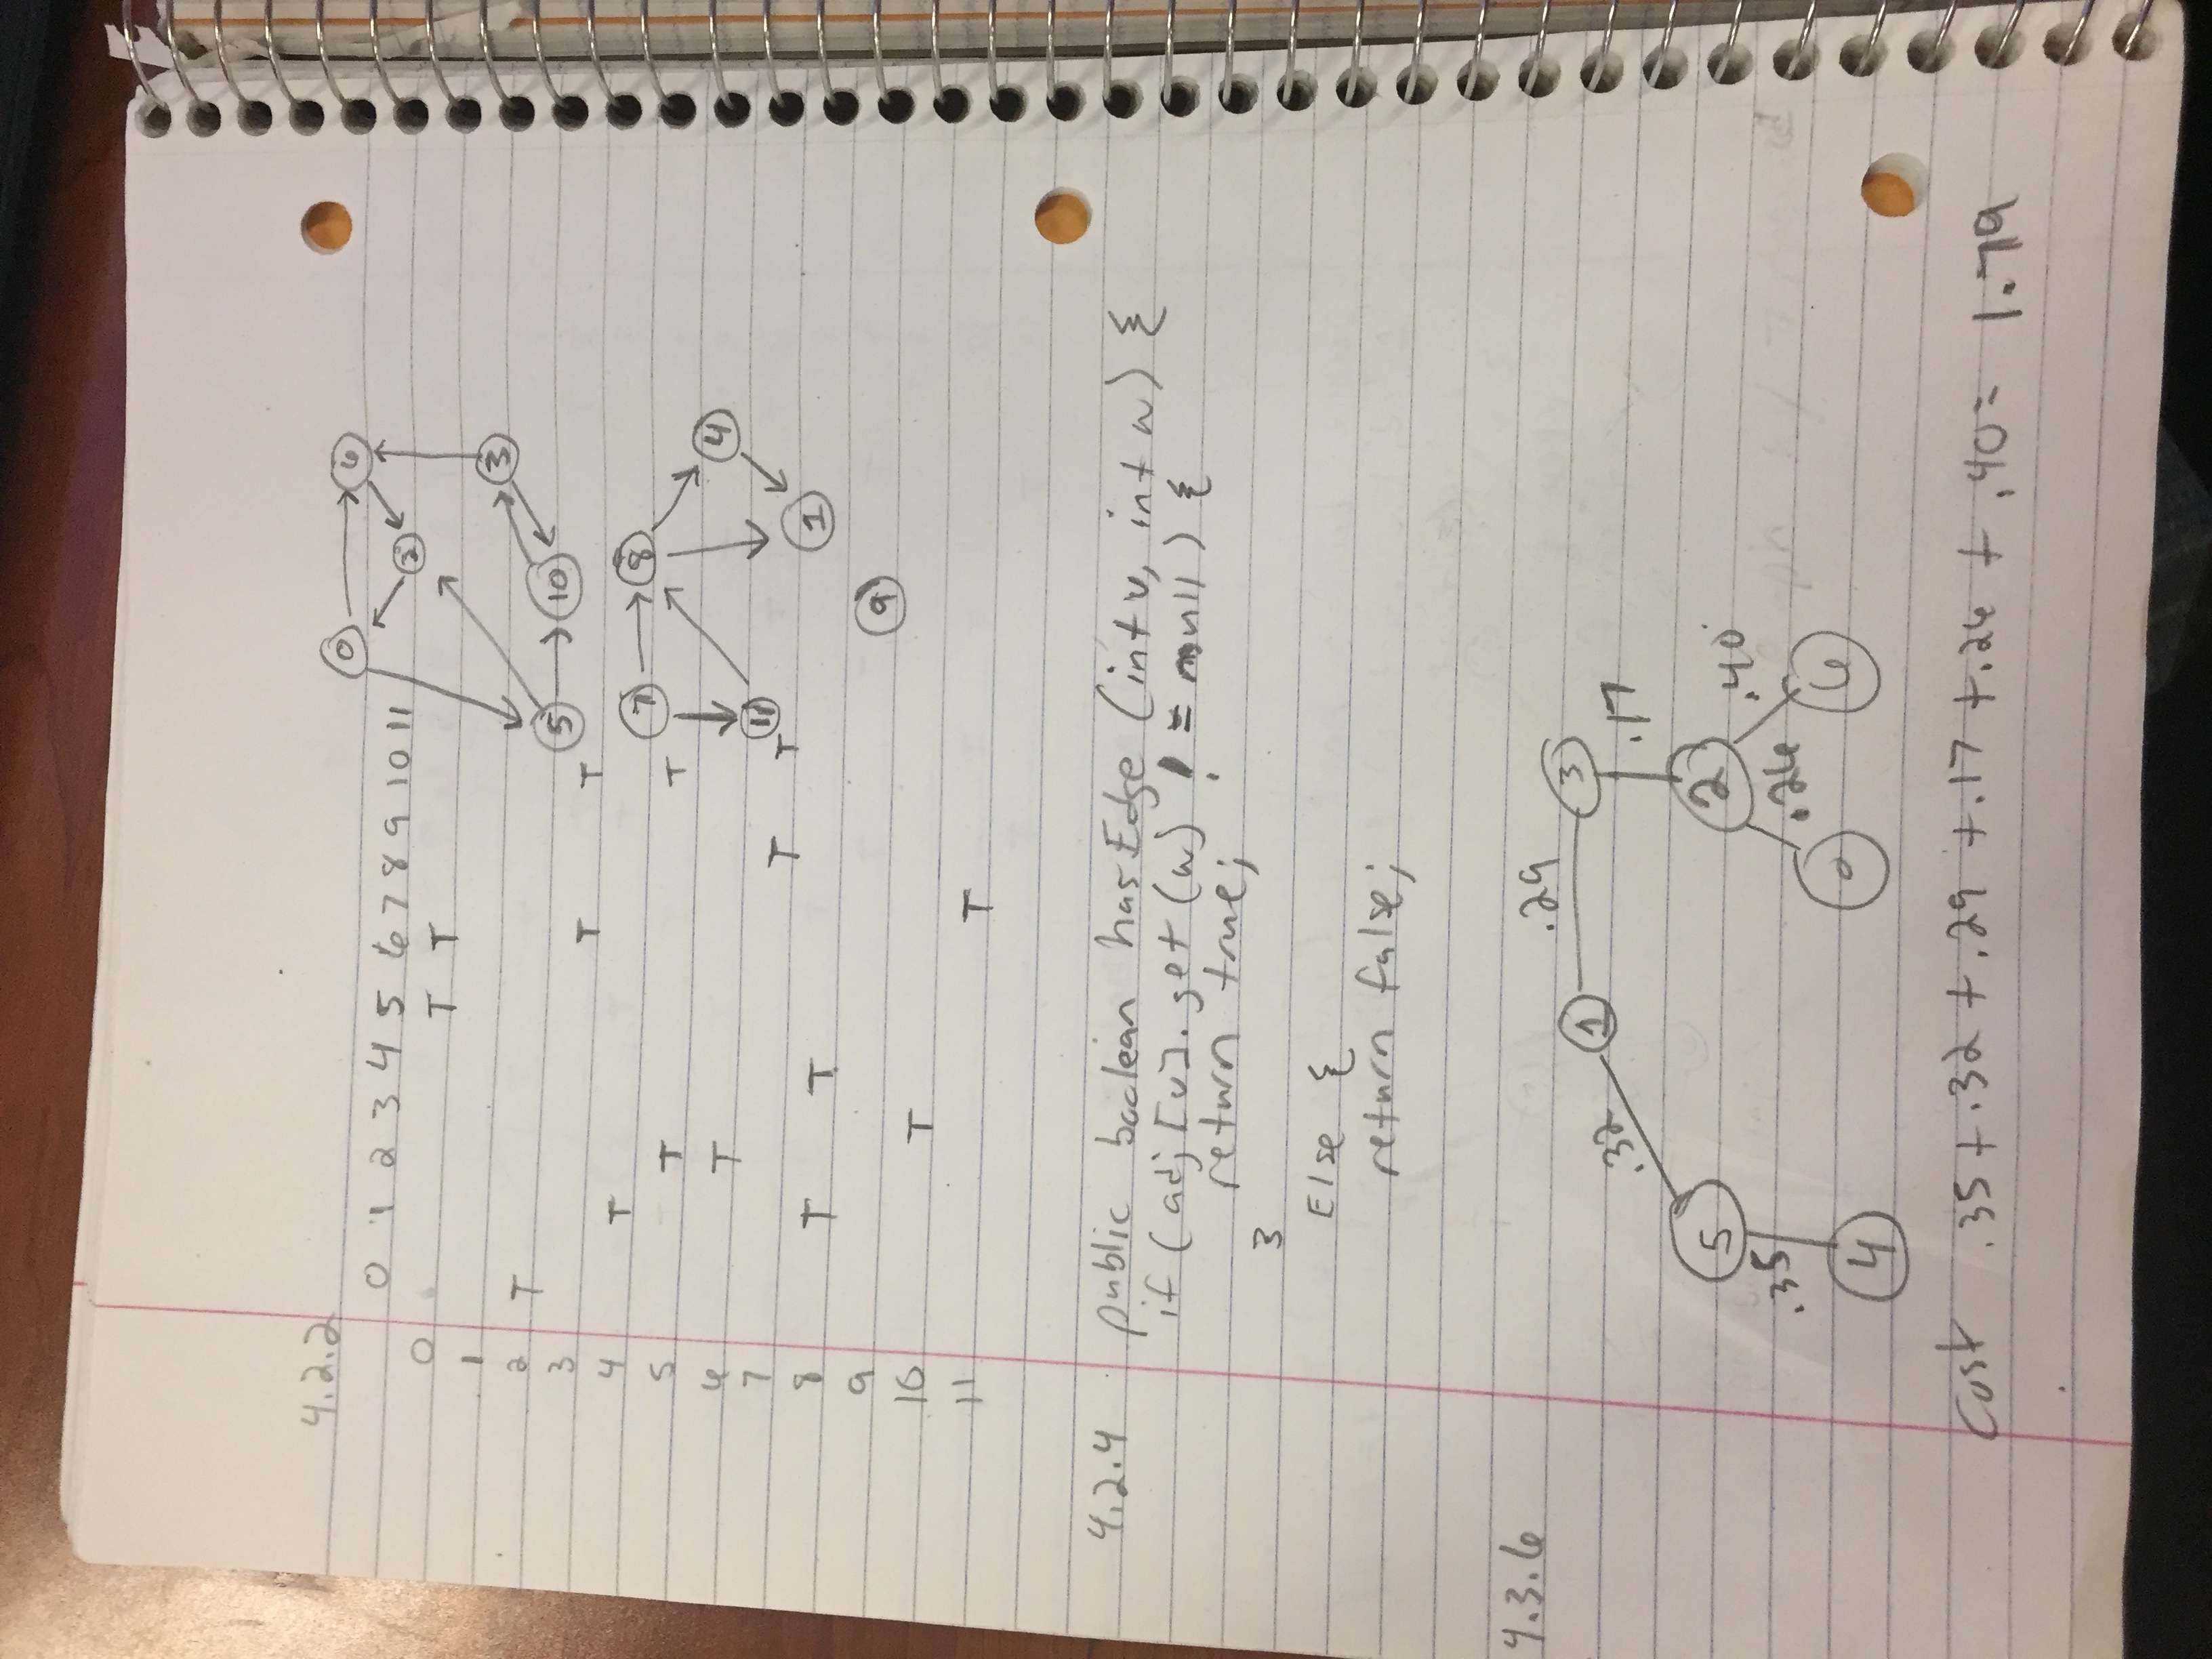 4.2.2
0 1 2 3 4 5 6 7 8 9 10 11
0 T T
1
2 T
3 T T
4 T
5 T T
6 T
7 T T
8 T T
9
10 T
11 T
0 6
2
5 10 3
7 8 4
11 1
9
4.2.4 public boolean hasEdge (int v, int w) {
if (adj[v].get(w) != null) {
return true;
}
Else {
return false;
4.3.6
1 .29 3
.32 .17
5 2
.35 .26 .40
4 0 6
Cost .35 + .32 + .29 + .17 + .26 + .40 = 1.79